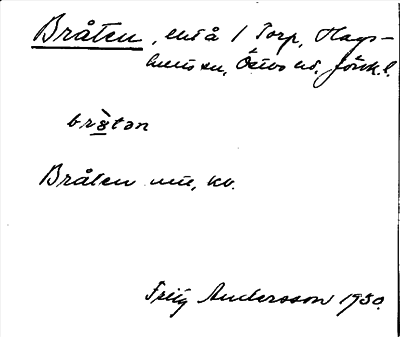 Bråten, enst å 1 Torp, Hags-
hults sn, Östbo hd. Jönk. l.
bråtən
Bråten nu, kv.
Fritz Andersson 1930.